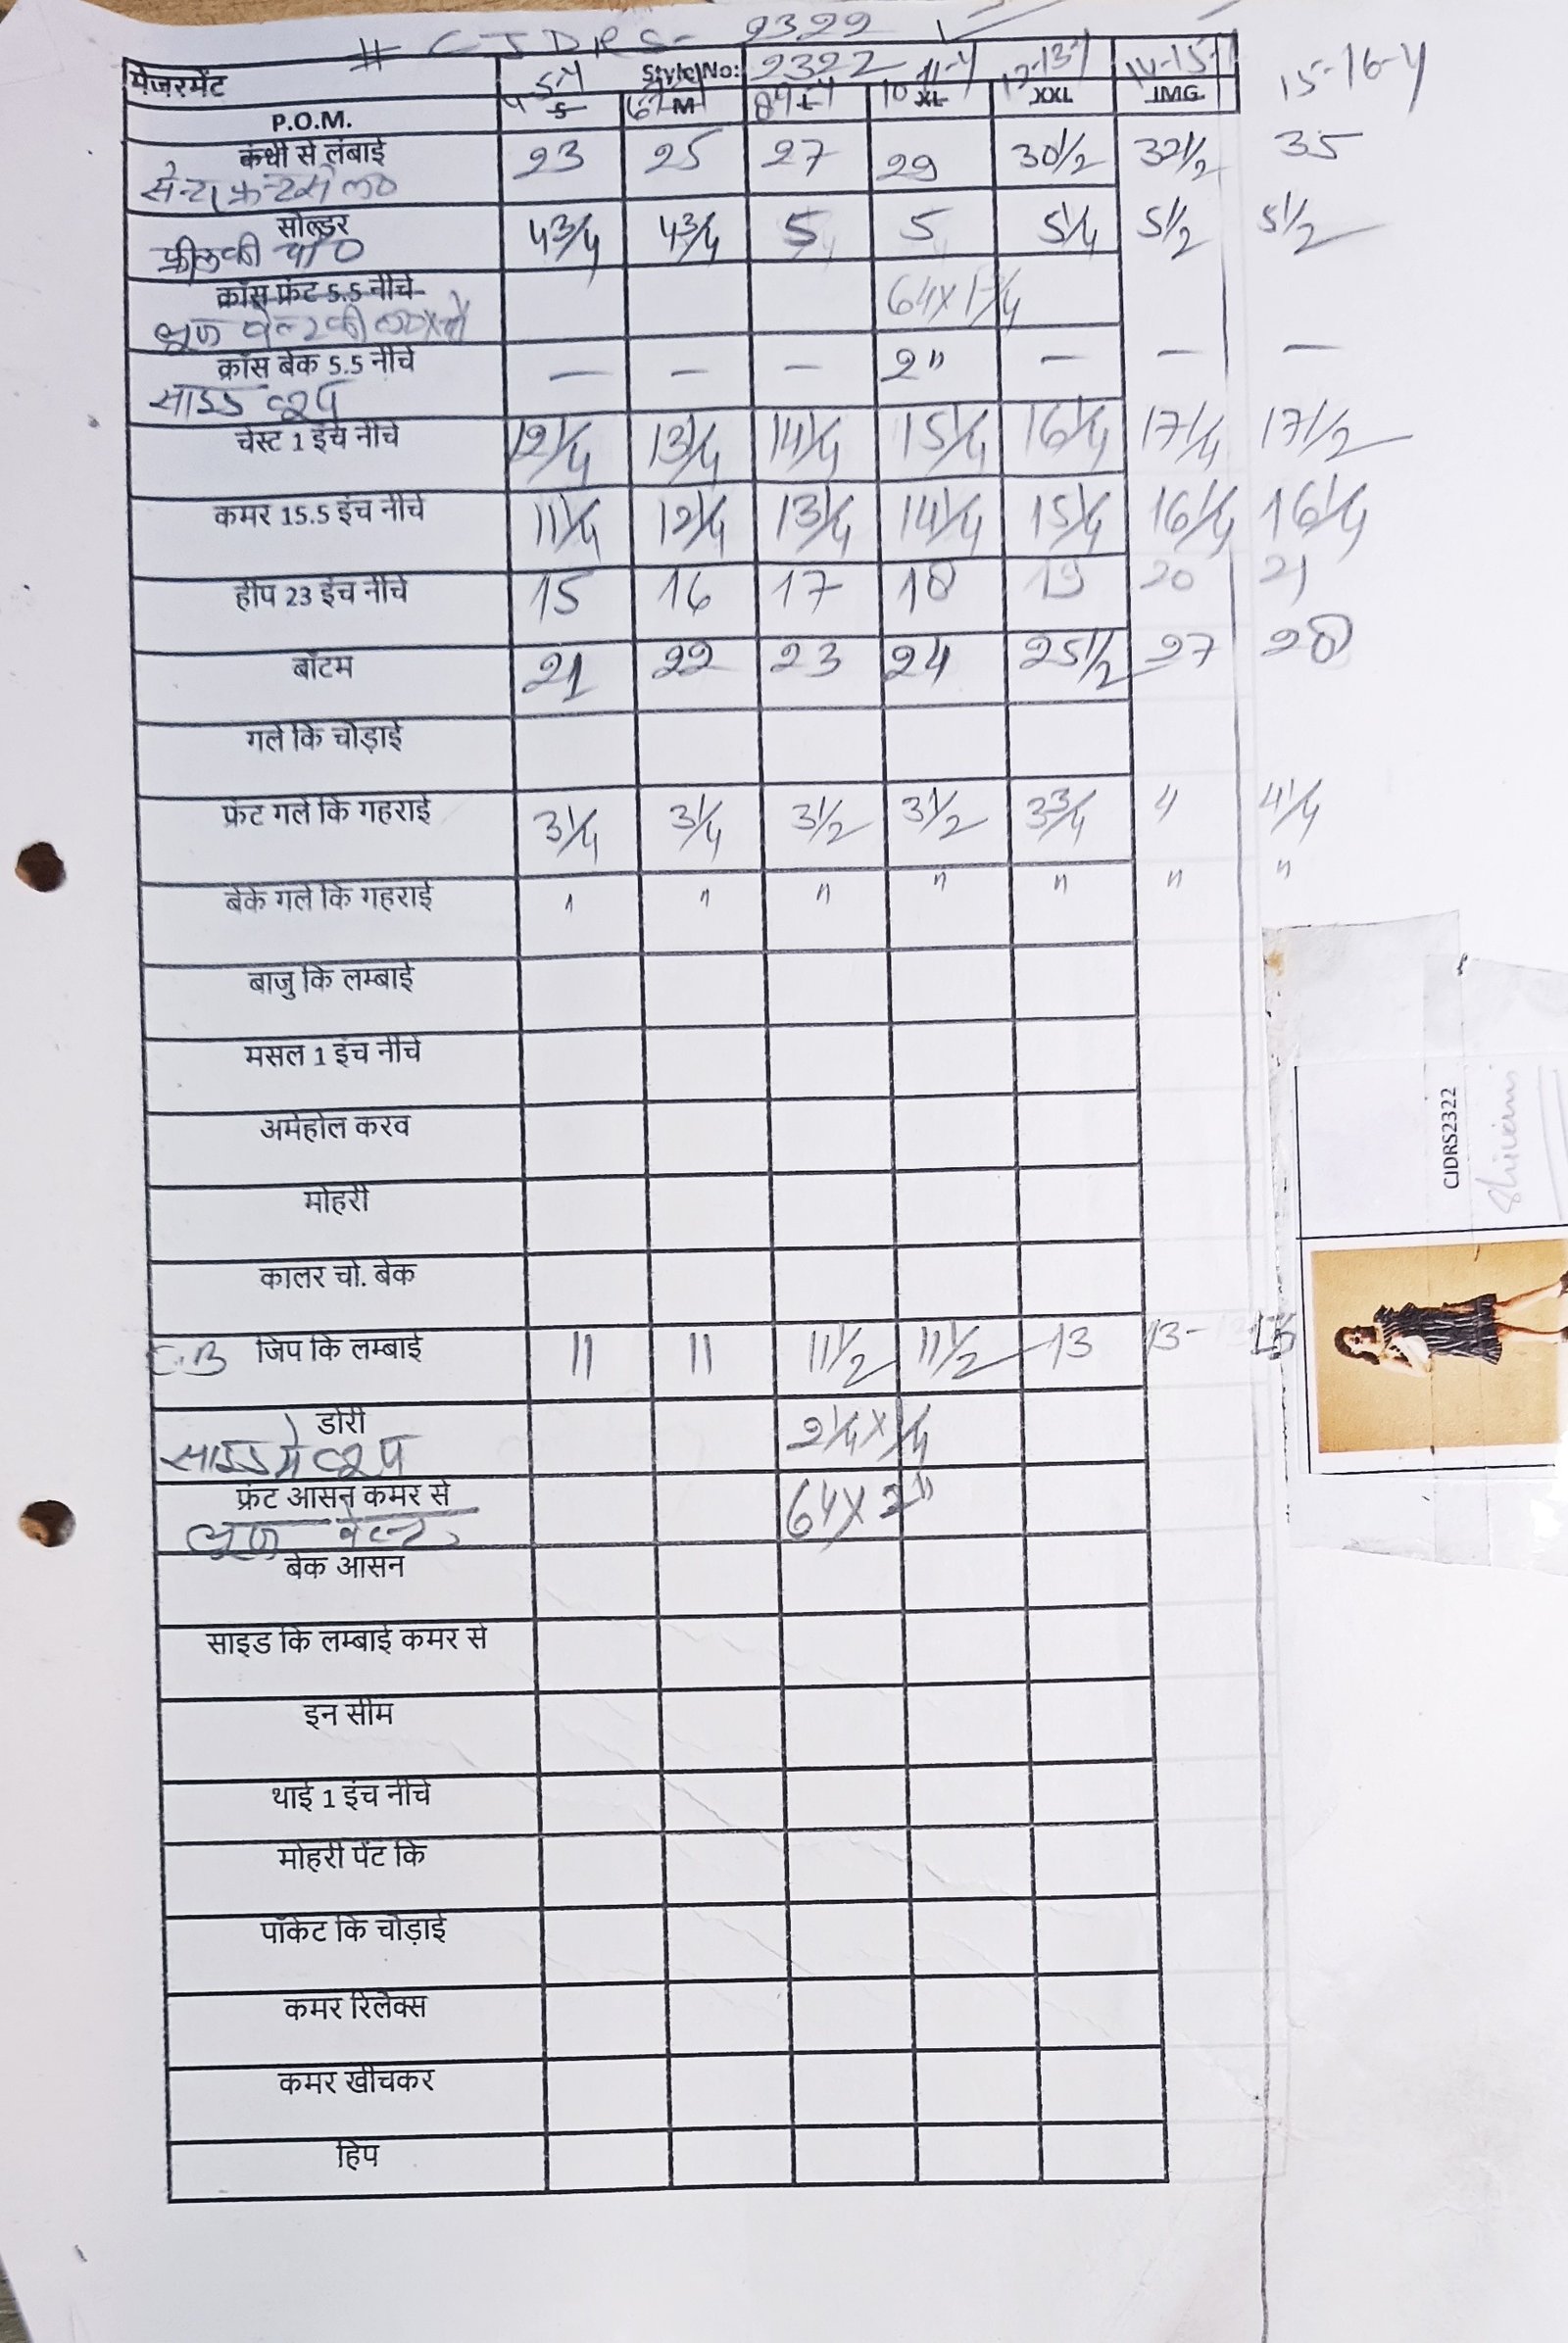 # CJDRS- 2322
मेजरमेंट Style No: 2322
P.O.M. 4-5-Y S 6-7-Y M 8-9-Y L 10-11-Y XL 12-13-Y XXL 14-15-Y IMG 15-16-Y
कंधी से लंबाई 23 25 27 29 30 1/2 32 1/2 35
सोल्डर 4 3/4 4 3/4 5 5 5 1/4 5 1/2 5 1/2
फ्रीलकी चौ०
क्रॉस फ्रंट 5.5 नीचे 64 x 1 3/4
क्रॉस बेक 5.5 नीचे — — — 2" — — —
साइड लूप
चेस्ट 1 इंच नीचे 12 1/4 13 1/4 14 1/4 15 1/4 16 1/4 17 1/4 17 1/2
कमर 15.5 इंच नीचे 11 1/4 12 1/4 13 1/4 14 1/4 15 1/4 16 1/4 16 1/4
हीप 23 इंच नीचे 15 16 17 18 19 20 21
बॉटम 21 22 23 24 25 1/2 27 28
गले कि चोड़ाई
फ्रंट गले कि गहराई 3 1/4 3 1/4 3 1/2 3 1/2 3 3/4 4 4 1/4
बेके गले कि गहराई " " " " " " "
बाजु कि लम्बाई
मसल 1 इंच नीचे
अर्महोल करव
मोहरी
कालर चो. बेक
C.B जिप कि लम्बाई 11 11 11 1/2 11 1/2 13 13 13
डोरी 2 1/4 x 1/4
साइड मे लूप
फ्रंट आसन कमर से 64 x 2"
लूज बेल्ट
बेक आसन
साइड कि लम्बाई कमर से
इन सीम
थाई 1 इंच नीचे
मोहरी पेंट कि
पॉकेट कि चोड़ाई
कमर रिलेक्स
कमर खींचकर
हिप
CJDRS2322